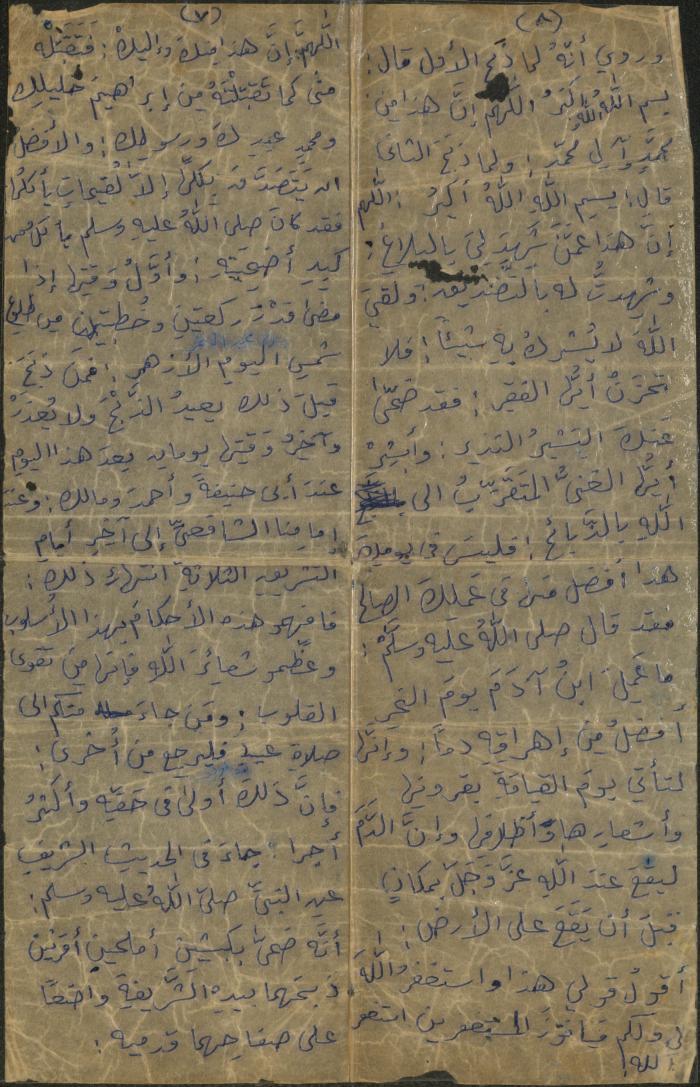 (٧)
اللَّهُمَّ إنَّ هذا مِنكَ وإليكَ: فَتَقَبَّلْهُ
منّى كما تَقَبَّلْتَهُ مِن إبراهيمَ خليلِك
ومحمدٍ عبدِكَ ورسولِكَ: والأفضل
ان يَتَصَدَّقَ بِكُلِّها إلاَّ لُقيماتٍ يأكلُها
فقد كانَ صلى اللَّهُ عليه وسلم يأكلُ من
كبدِ أضحيتِهِ: وأوَّلُ وَقتِها إذا
مضى قَدْرُ ركعتينِ وخُطبتينِ من طلوع
شمسِ اليومِ الأزهرِ: فمَن ذَبَحَ
قبلَ ذلك يعيدُ الذَّبْحَ ولا يُعْذَرْ
وآخِرُ وَقتِها يومانِ بعدَ هذا اليوم
عندَ أبى حنيفةَ وأحمدَ ومالك: وعند
إمامِنا الشافعىِّ إلى آخِرِ أيام
التشريقِ الثلاثةِ انتهاءُ ذلك:
فافهمو هذه الأحكامَ بهذا الأُسلوب
وعظِّمو شعائرَ اللَّهِ فإنّها مِن تقوى
القلوب: ومَن جاءَ منكم الى
صلاةِ عيدٍ فليرجع مِن أُخرى:
فإنَّ ذلكَ أولى فى حَقِّهِ وأكثرُ
أجرا: جاءَ فى الحديثِ الشريفِ
عن النبىِّ صلىّ اللَّهُ عليه وسلم:
أنَّه ضَحىَّ بكبشينِ أملحينِ أقرنين
ذَبَحَهما بيدِهِ الشَّريفةِ واضعًا
على صفاحِهما قدميه:
(٨)
وروي أنَّهُ لما ذَبَحَ الأول قال:
بسم اللَّهِ اللَّهُ أكبَرُ اللَّهم إنَّ هذا مِن
محمَّدٍ وآلِ محمَّد: ولما ذبَحَ الثانى
قال: بسمِ اللَّهِ اللَّهُ أكبرُ: اللَّهم
إنَّ هذا عمَّن شَهِدَ لىَ بالبلاغ:
وشهدتُ له بالتَّصديق: ولقىَ
اللَّهَ لا يُشركُ بِهِ شيئاً: فلا
تحزَنْ أيُّها الفقير: فقد ضَحّى
عنكَ البشيرُ النذير: وأبشِرْ
أيُّها الغنىُّ المتقَرِّبُ الى
اللَّهِ بالذَّبائح: فليسَ فى يومِكَ
هذا أفضل منها فى عَمَلِكَ الصالح
فقد قال صلى اللَّهُ عليه وسلَّم:
ما عَمِلَ ابنُ آدَمَ يومَ النحرِ
أفضلُ مِن إهراقِهِ دماً: وإنَّها
لتأتي يومَ القيامةِ بقرونِها
وأشعارِها وأظلافِها وإنَّ الدَّمَ
ليقعَ عندَ اللَّهِ عزَّ وَجَلَّ بمكانٍ
قبلَ أن يَقَعَ على الأرض:
أقولُ قولي هذا واستغفرُ اللَّهَ
لى ولكم فيا فوزَ المستغفرين استغفر
اللَّه: